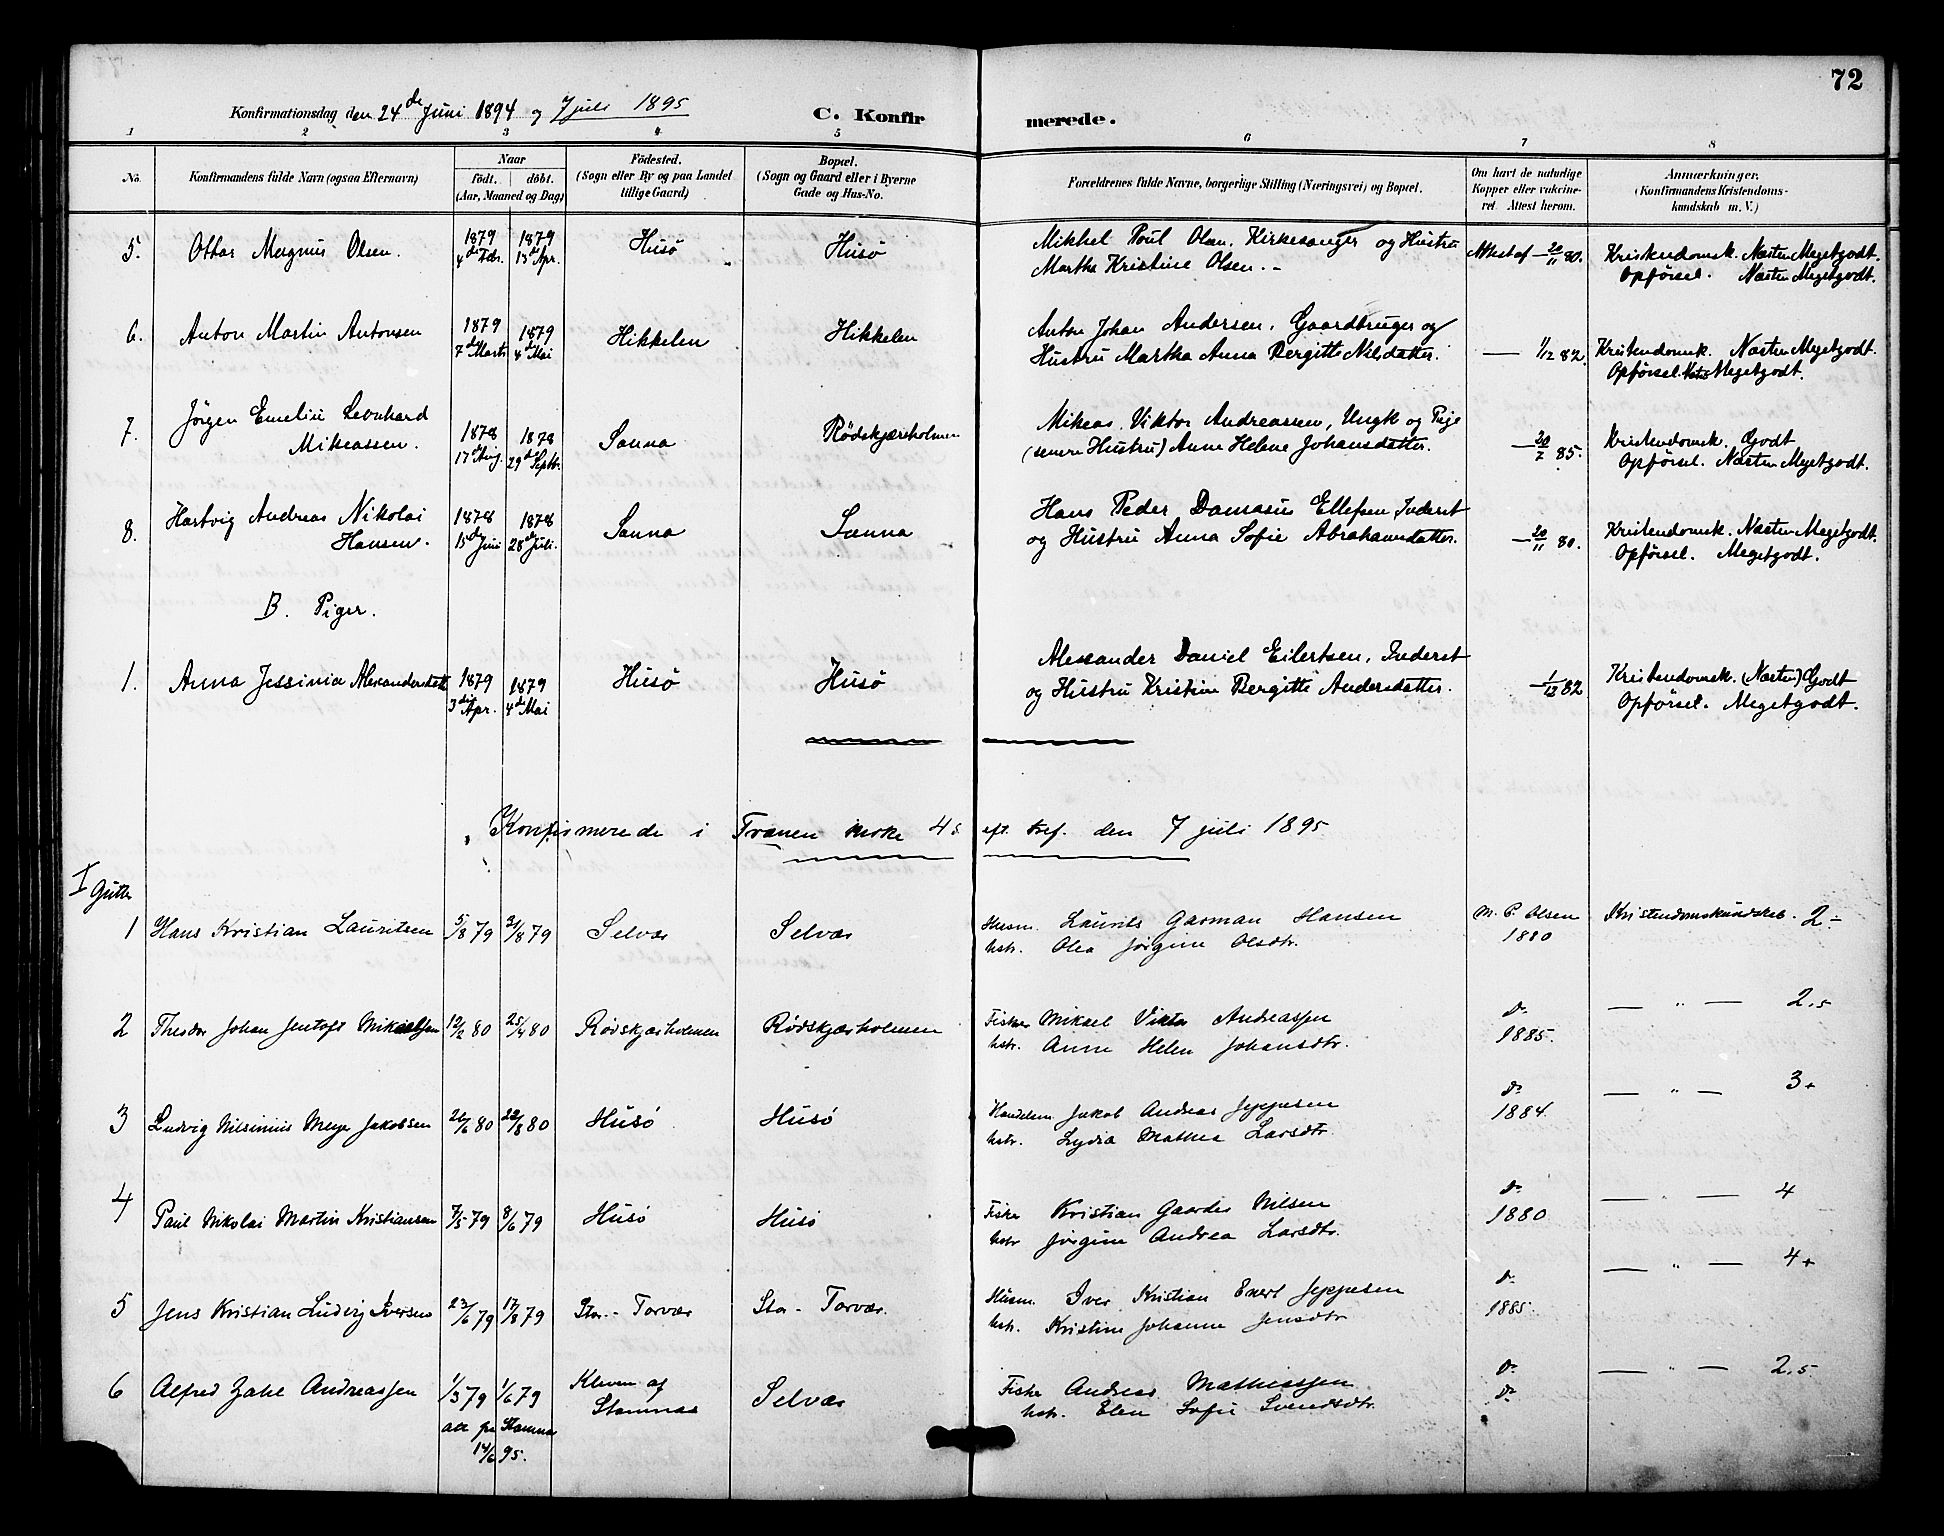 72
Konfirmationsdag den 24de Juni 1894 og 7 juli 1895 C. Konfirmerede.
1 2 3 4 5 6 7 8
No. Konfirmandens fulde Navn (ogsaa Efternavn) Naar födt. döbt. (Aar, Maaned og Dag) Födested. (Sogn eller By og paa Landet tillige Gaard) Bopæl. (Sogn og Gaard eller i Byerne Gade og Hus-No. Forældrenes fulde Navne, borgerlige Stilling (Næringsvei) og Bopæl. Om havt de naturlige Kopper eller vaccineret. Attest herom. Anmærkninger. (Konfirmandens Kristendomskundskab m. V.)
5. Ottar Magnus Olsen. 1879 4de Febr. 1879 13de Apr. Husö Husö Mikkel Poul Olsen, Kirkesanger og Hustru Attest af 20/11 80. Kristendomsk. Næsten Megetgodt.
Martha Kristine Olsen. Opførsel. Næsten Megetgodt.
6. Anton Martin Antonsen 1879 7de Marts 1879 4de Mai Hikkelen Hikkelen Anton Johan Andersen, Gaardbruger og — 1/12 82. Kristendomsk. Næsten Megetgodt.
Hustru Martha Anna Bergitte Nilsdatter. Opførsel. Megetgodt.
7. Jörgen Emeliu Leonhard
Mikeassen. 1878 17de Aug. 1878 29de Septbr. Sanna Rödskjærholmen Mikeas Viktor Andreassen, Ungk og Pige — 20/7 85. Kristendomsk. Godt
(senere Hustru) Anne Helene Johansdatter. Opførsel. Næsten Megetgodt.
8. Hartvig Andreas Nikolai
Hansen. 1878 15de Juni 1878 28de Juli. Sanna Sanna Hans Peder Damasus Ellefsen, Inderst — 20/11 80. Kristendomsk. Næsten Megetgodt.
og Hustru Anna Sofie Abrahamsdatter. Opførsel. Megetgodt.
B. Piger.
1. Anna Jessinia Alexandersdatt 1879 3die Apr. 1879 4de Mai Husö Husö Alexander Daniel Eilertsen, Inderst — 1/12 82 Kristendomsk. (Næsten) Godt
og Hustru Kristine Bergitte Andersdatter. Opførsel. Megetgodt.
Konfirmerede i Trænen kirke 4 s. eft. tref. den 7 juli 1895
I Gutter
1 Hans Kristian Lauritsen 5/8 79 31/8 79 Selvær Selvær Husm. Laurits Garman Hansen M. P. Olsen 1880 Kristendomskundskab. 2 ÷
hstr. Olea Jørgine Olsdtr.
2 Theodor Johan Jentoft Mikaelsen 12/2 80 25/4 80 Rödskjærholmen Rödskjærholmen Fisker Mikael Viktor Andreassen do 1885. — " — 2,5
hstr. Anne Helen Johansdtr.
3 Ludvig Nilsinius Meyer Jakobsen 26/6 80 22/8 80 Husö Husö Handelsm Jakob Andreas Jeppesen do 1884. — " — 3+
hstr. Lydia Mathea Larsdtr.
4 Paul Nikolai Martin Kristiansen 7/5 79 8/6 79 Husö Husö Fisker Kristian Gaarder Nilsen do 1880 — " — 4
hstr Jørgine Andrea Larsdtr.
5 Jens Kristian Ludvig Iversen 23/6 79 17/8 79 Stor-Torvær Stor-Torvær. Husm. Iver Kristian Evert Jeppesen do 1885. — " — 4+
hstr. Kristine Johanne Jensdtr
6 Alfred Zahl Andreassen 1/3 79 1/6 79 Kleven af Stamnæs Selvær Fisker Andreas Mathiassen do do — " — 2,5
hstr. Elen Sofie Svendsdtr.
Stamnæs 14/6 95.